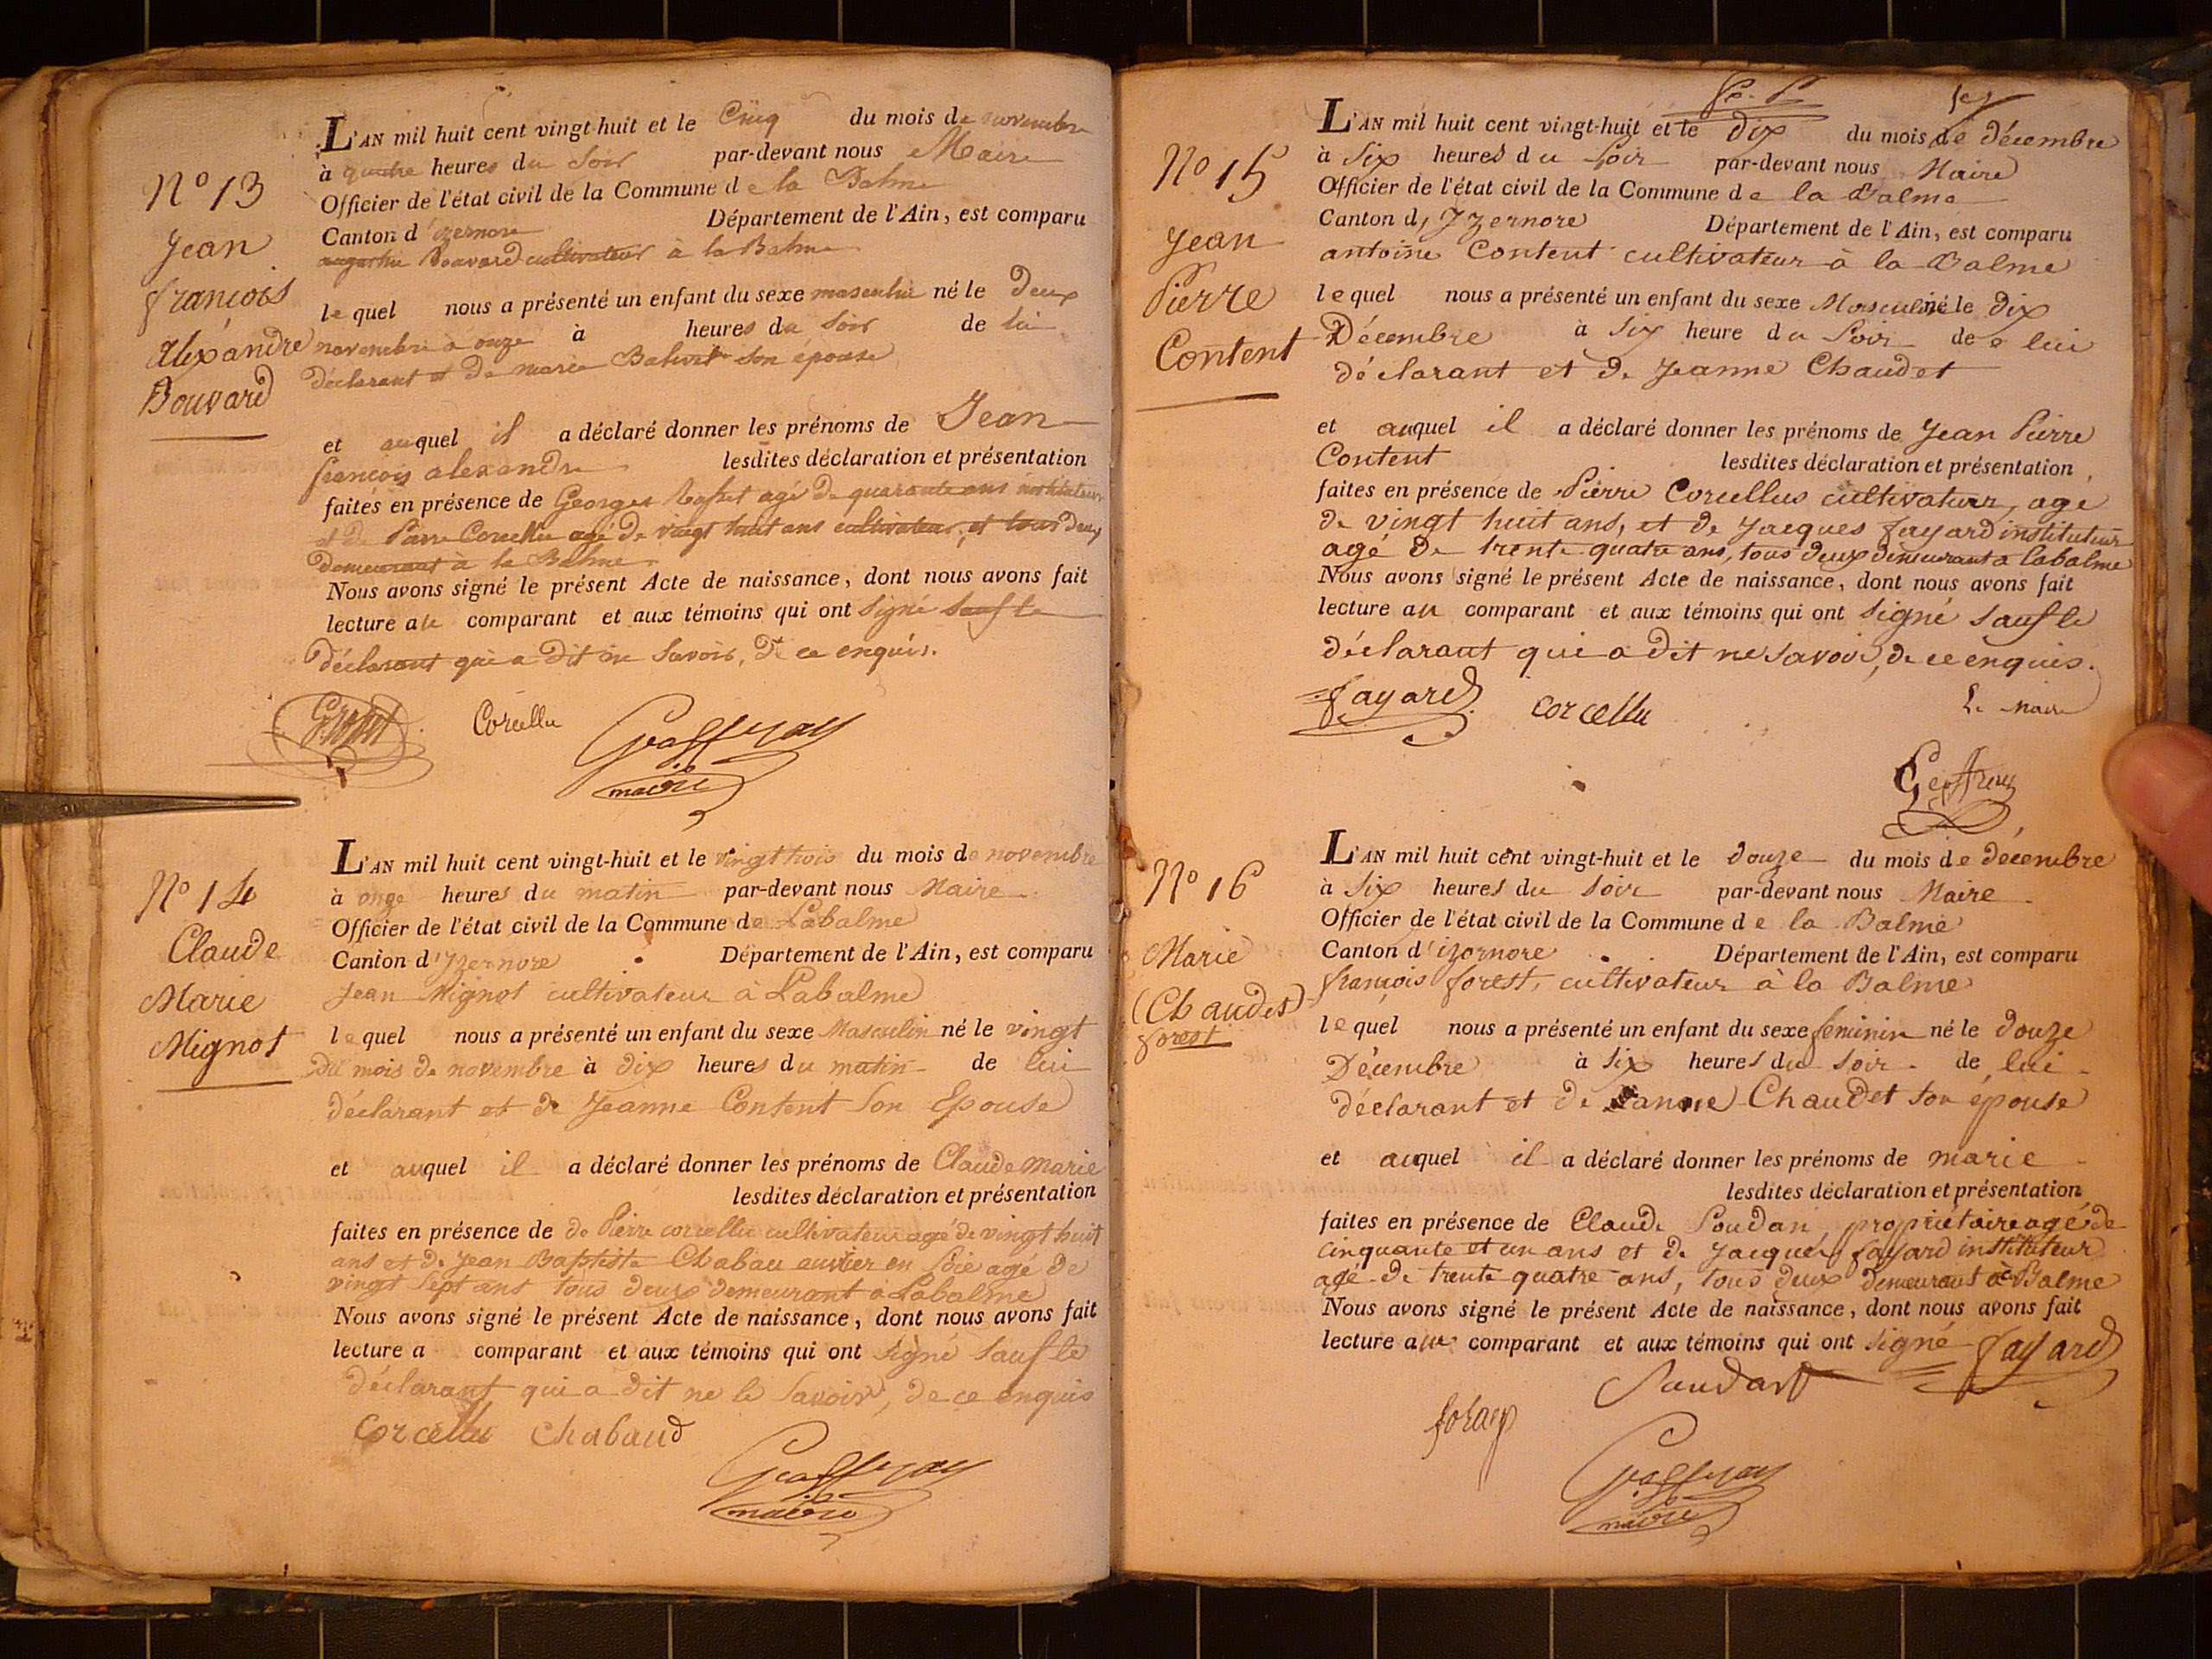 N° 13
Jean
françois
alexandre
Bouvard
L'AN mil huit cent vingt-huit et le Cinq du mois de novembre
à quatre heures du Soir par-devant nous Maire
Officier de l'état civil de la Commune de la Balme
Canton d'izernore Département de l'Ain, est comparu
augustin Bouvard cultivateur à la Balme
lequel nous a présenté un enfant du sexe masculin né le Deux
novembre à onze à heures du Soir de lui
déclarant et De marie son épouse
et auquel il a déclaré donner les prénoms de Jean
françois alexandre lesdites déclaration et présentation
faites en présence de Georges agé De quarante ans
et de Pierre Corcellu agé De vingt huit ans cultivateur, et tous deux
demeurant à la Balme
Nous avons signé le présent Acte de naissance, dont nous avons fait
lecture au comparant et aux témoins qui ont Signé Sauf le
déclarant qui a Dit ne Savoir, De ce enquis.
Corcellu
maire
N° 14
Claude
Marie
Mignot
L'AN mil huit cent vingt-huit et le vingt trois du mois de novembre
à onze heures du matin par-devant nous Maire
Officier de l'état civil de la Commune de Labalme
Canton d'Yzernore Département de l'Ain, est comparu
Jean Mignot cultivateur à Labalme
lequel nous a présenté un enfant du sexe Masculin né le vingt
du mois De novembre à Dix heures du matin de lui
déclarant et de Jeanne Content Son Epouse
et auquel il a déclaré donner les prénoms de Claude Marie
lesdites déclaration et présentation
faites en présence de de Pierre corcellu cultivateur agé de vingt huit
ans et De Jean Baptiste Chabau ouvrier en Soie agé De
vingt Sept ans tous deux demeurant à Labalme
Nous avons signé le présent Acte de naissance, dont nous avons fait
lecture a comparant et aux témoins qui ont Signé Sauf le
déclarant qui a dit ne le Savoir, de ce enquis
corcellu chabaud
maire
N° 15
Jean
Pierre
Content
L'AN mil huit cent vingt-huit et le dix du mois de décembre
à Six heures du Soir par-devant nous Maire
Officier de l'état civil de la Commune de la Balme
Canton d, Yzernore Département de l'Ain, est comparu
antoine Content cultivateur à la Balme
lequel nous a présenté un enfant du sexe Masculin né le dix
Décembre à Six heure du Soir de e lui
déclarant et De Jeanne Chaudet
et auquel il a déclaré donner les prénoms de Jean Pierre
Content lesdites déclaration et présentation
faites en présence de Pierre Corcellus cultivateur, agé
de vingt huit ans, et de Jacques fayard instituteur
agé De trente quatre ans, tous deux demeurant a labalme
Nous avons signé le présent Acte de naissance, dont nous avons fait
lecture au comparant et aux témoins qui ont Signé Sauf le
déclarant qui a Dit ne Savoir, de ce enquis.
fayard corcellu Le maire
N° 16
Marie
(Chaudet)
forest
L'AN mil huit cent vingt-huit et le douze du mois de décembre
à Six heures du Soir par-devant nous Maire
Officier de l'état civil de la Commune de la Balme
Canton d'izornore Département de l'Ain, est comparu
françois forest, cultivateur à la Balme
lequel nous a présenté un enfant du sexe feminin né le Douze
Décembre à Six heures du Soir de lui
déclarant et De Chaudet Son épouse
et auquel il a déclaré donner les prénoms de marie
lesdites déclaration et présentation
faites en présence de Claude Soudan, propriétaire agé de
cinquante et un ans et De Jacques fayard instituteur
agé De trente quatre ans, tous deux demeurant à Balme
Nous avons signé le présent Acte de naissance, dont nous avons fait
lecture au comparant et aux témoins qui ont Signé fayard
maire